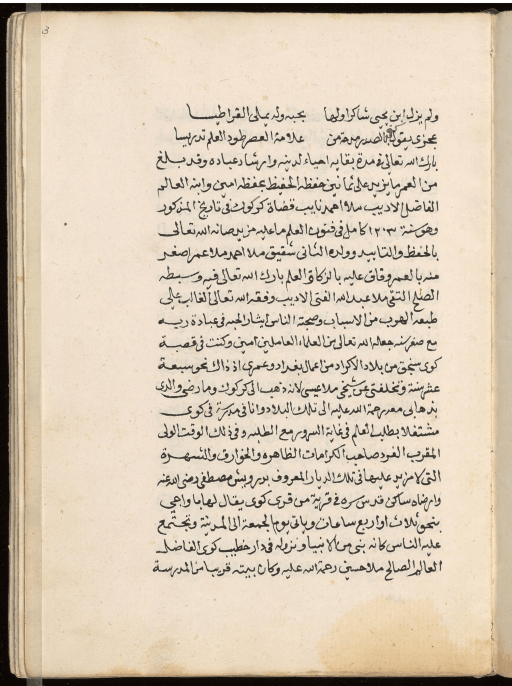 ولم يزل ابن يحيى شاكرا ولها بجبه وله يملى القراطيسا
يجزى بقول الصدر مدحة من علامة العصر طود العلم تدريسا
بارك الله تعالى في مدة بقايه احياء لدينه وارشاد عباده وقد بلغ
من العمر ما يزيد على ثمانين حفظه الحفيظ بحفظه امين وابنه العالم
الفاضل الاديب ملا احمد نايب قضاة كركوك في تاريخ المذكور
وهو سنة ١٢١٣ كامل في فنون العلم ما عليه مزيد صانه الله تعالى
بالحفظ والتاييد وولده الثاني شقيق ملا احمد ملا عمر اصغر
منه بالعمر وفاق عليه بالزكاة والعلم بارك الله تعالى فيه وسبطه
الصالح التقى ملا عبد الله الفتى الاديب وفقه الله تعالى الغالب على
طبعه الهرب من الاسباب وصحبة الناس ايثار الجبه في عبادة ربه
مع صغر سنه جعله الله تعالى من العلماء العاملين امين وكنت في قصبة
كوى سنجق من بلاد الاكراد من اعمال بغداد وعمرى اذ ذاك نحو سبعة
عشر سنة وتخلفت عن شيخى ملا عيسى لانه ذهب الى كركوك وما رضى والدى
بذهابى معه رحمة الله عليه الى تلك البلاد وانا في مدرسة في كوى
مشتغلا بطلب العلم في غاية السرور مع الطلبه وفي ذلك الوقت الولى
المقرب الفرد صاحب الكرامات الظاهره والخوارق والشهرة
التى لا مزيد عليها في تلك الديار المعروف بدرويش مصطفى رضى الله عنه
وارضاه ساكن قدس سره في قرية من قرى كوى يقال لها باواجى
بنحو ثلاث او اربع ساعات وياتى يوم الجمعة الى المدينة وتجتمع
عليه الناس كانه بنى من الانبيا ونزوله في دار خطيب كوى الفاضل
العالم الصالح ملا حسين رحمة الله عليه وكان بيته قريبا من المدرسة